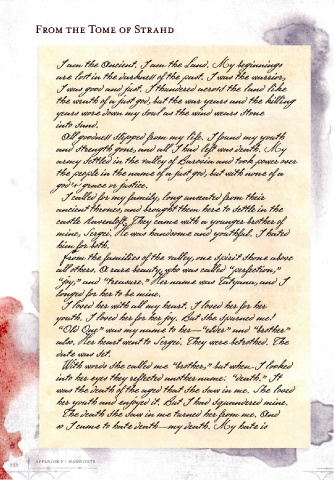 From the Tome of Strahd
I am the Ancient. I am the Land. My beginnings
are lost in the darkness of the past. I was the warrior,
I was good and just. I thundered across the land like
the wrath of a just god, but the war years and the killing
years wore down my soul as the wind wears stone
into sand.
All goodness slipped from my life. I found my youth
and strength gone, and all I had left was death. My
army settled in the valley of Barovia and took power over
the people in the name of a just god, but with none of a
god's grace or justice.
I called for my family, long unseated from their
ancient thrones, and brought them here to settle in the
castle Ravenloft. They came with a younger brother of
mine, Sergei. He was handsome and youthful. I hated
him for both.
From the families of the valley, one spirit shone above
all others. A rare beauty, who was called "perfection,"
"joy," and "treasure." Her name was Tatyana, and I
longed for her to be mine.
I loved her with all my heart. I loved her for her
youth. I loved her for her joy. But she spurned me!
"Old One" was my name to her—"elder" and "brother"
also. Her heart went to Sergei. They were betrothed. The
date was set.
With words she called me "brother," but when I looked
into her eyes they reflected another name: "death." It
was the death of the aged that she saw in me. She loved
her youth and enjoyed it. But I had squandered mine.
The death she saw in me turned her from me. And
so I came to hate death—my death. My hate is
APPENDIX F | HANDOUTS